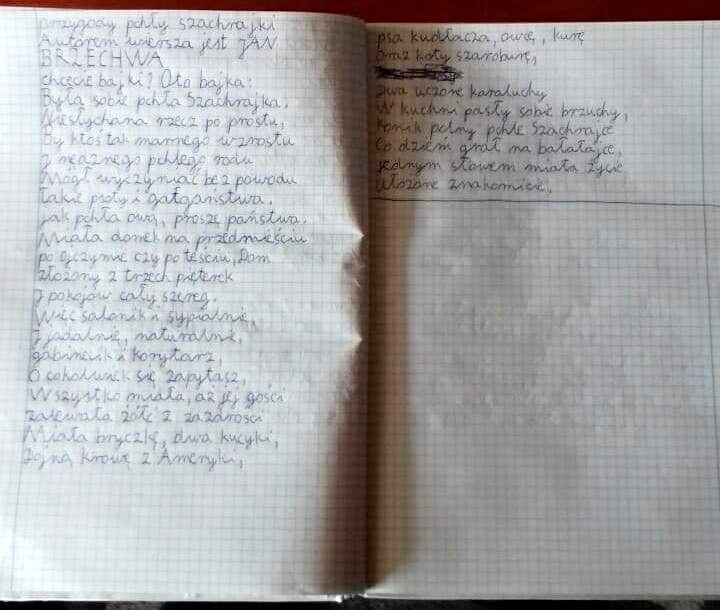 przygody pchły szachrajki
Autorem wiersza jest JAN
BRZECHWA
chcecie bajki? Oto bajka:
Była sobie pchła Szachrajka.
Niesłychana rzecz po prostu,
By ktoś tak marnego wzrostu
I nędznego pchlego rodu
Mógł wyczyniać bez powodu
takie psoty i gałgaństwa.
jak pchła ową, proszę państwa.
Miała domek na przedmieściu
po ojczymie czy po teściu, Dom
złożony z trzech pięterek
I pokojów cały szereg.
Więc salonik i sypialnię,
I jadalnię, naturalnie,
gabinecik i korytarz,
O cokolwiek się zapytasz,
Wszystko miała, aż jej gości
zalewała żółć z zazdrości
Miała bryczkę, dwa kucyki,
Dojną krowę z Ameryki,
psa kudłacza, owcę, kurę
oraz koty szarobure,
dwa uczone karaluchy
W kuchni pasły sobie brzuchy,
Konik polny pchle Szachrajce
Co dzień grał na bałałajce,
jednym słowem miała życie
ułożone znakomicie,